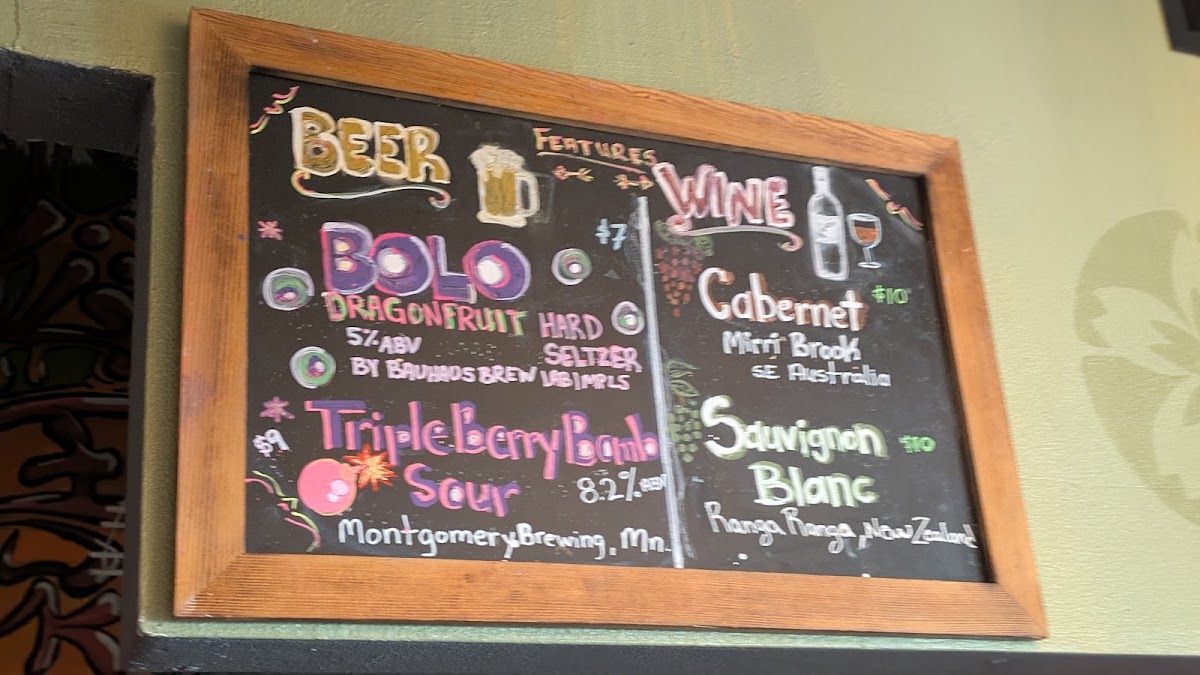 FEATURES
BEER
BOLO $7
DRAGONFRUIT HARD
SELTZER
5% ABV
BY BAUHAUS BREW LAB | MPLS
$9 Triple Berry Bomb
Sour 8.2% ABV
Montgomery Brewing, Mn.
WINE
Cabernet $10
Mirri Brook
SE Australia
Sauvignon $10
Blanc
Ranga Ranga, New Zealand